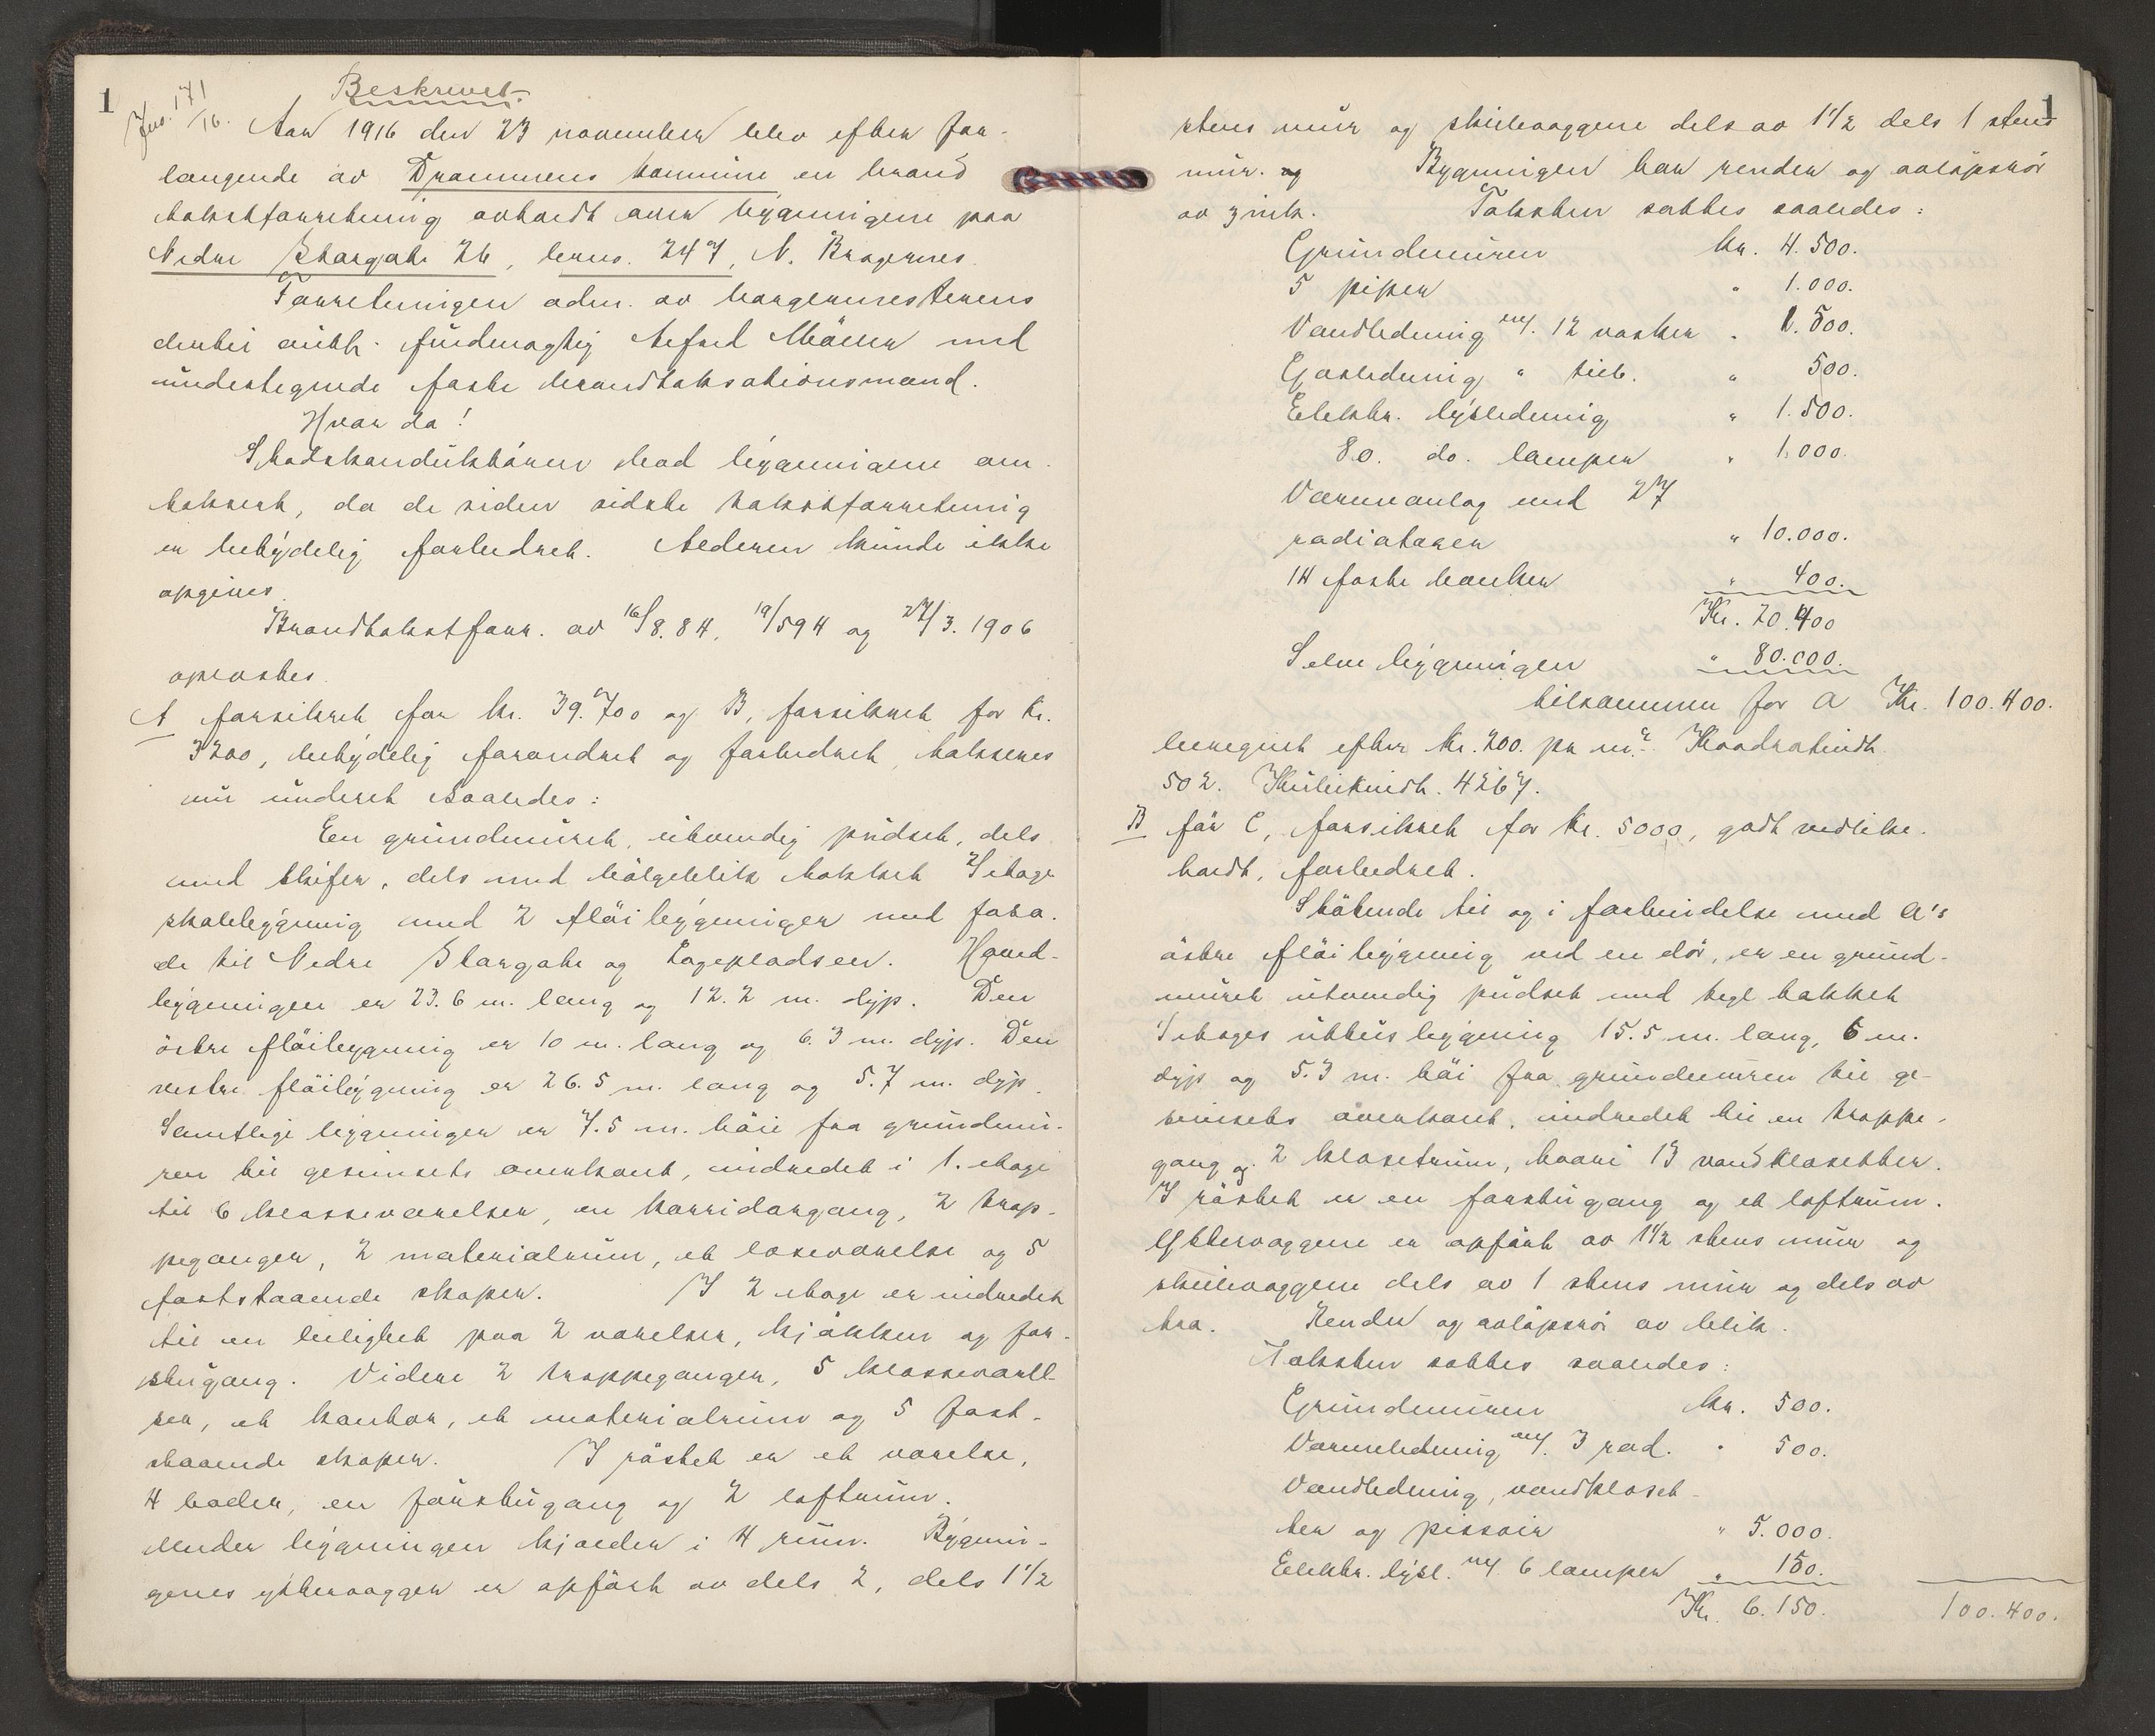 1
Beskrevet.
Jno. 171/16.
Aar 1916 den 23 november blev efter for-
langende av Drammens kommune en brand
takstforretning avholdt over bygningene paa
Nedre Storgate 26, brno. 247, N. Bragernes.
Forretningen adm. av borgermesterens
dertil autr. fuldmægtig
undertegnede faste brandtaksationsmand.
Hvor da!
Stadskonduktøren bad bygningene om-
taksert, da de siden sidste takstforretning
er betydelig forbedret. Alderen kunde ikke
opgives.
Brandtakstforr. av 16/8.84, 19/594 og 27/3.1906
oplæstes.
A forsikret for kr. 39.700 og B, forsikret for kr.
3200, betydelig forandret og forbedret, takseres
nu under et saaledes:
En grundmuret, utvendig pudset, dels
med skifer, dels med bølgeblik tækket 2 etage
skolebygning med 2 fløibygninger med fasa-
de til Nedre Storgate og Tagepladsen. Hoved-
bygningen er 23.6 m. lang og 12.2 m. dyp. Den
østre fløibygning er 10 m. lang og 6.3 m. dyp. Den
vestre fløibygning er 26.5 m. lang og 5.7 m. dyp.
Samtlige bygninger er 7.5 m. høie fra grundmu-
ren til gesimsets overkant, indredet i 1. etage
til 6 klasseværelser, en korridorgang, 2 trap-
peganger, 2 materialrum, et læseværelse og 5
fastståaende skaper. I 2 etage er indredet
til en leilighet paa 2 værelser, kjøkken og for-
stugang. Videre 2 trappeganger, 5 klasseværel-
ser, et kontor, et materialrum og 5 fast-
staaende skaper. I røstet er et værelse,
4 boder, en forstugang og 2 loftrum.
Under bygningen kjælder i 4 rum. Bygnin-
genes ydtervægger er opført av dels 2, dels 1 1/2
1
stens mur og skillevæggene dels av 1 1/2 dels 1 stens
mur. og Bygningen har render og avløpsrør
av zink. Taksten sattes saaledes:
Grundmuren kr. 4.500.
5 piper " 1.000.
Vandledning m/. 12 vasker " 1.500.
Gasledning " tilb. " 500.
Elektr. lysledning " 1.500.
80. do. lamper " 1.000.
Varmeanlæg med 27
radiatorer " 10.000.
14 faste bænker " 400.
Kr. 20.400
Selve bygningen " 80.000.
tilsammen for A Kr. 100.400.
beregnet efter kr. 200. pr m². Kvadratindh.
502. Kubikindh. 4267.
B før C, forsikret for kr. 5000, godt vedlike-
holdt, forbedret.
Støtende til og i forbindelse med A's
østre fløibygning ved en dør, er en grund-
muret utvendig pudset med tegl tækket
1 etages uthusbygning 15.5 m. lang, 6 m.
dyp og 5.3 m. høi fra grundmuren til ge-
simsets overkant, indredet til en trappe-
gang og 2 klosetrum, hvori 13 vandklosetter.
I røstet er en forstugang og et loftrum.
Ydtervæggene er opført av 1 1/2 stens mur og
skillevæggene dels av 1 stens mur og dels av
træ. Render og avløpsrør av blik.
Taksten sattes saaledes:
Grundmuren kr. 500.
Varmeledning m/. 3 rad. " 500.
Vandledning, vandkloset-
ter og pissoir " 5.000.
Elektr. lysl. m/. 6 lamper " 150.
Kr. 6.150. 100.400.